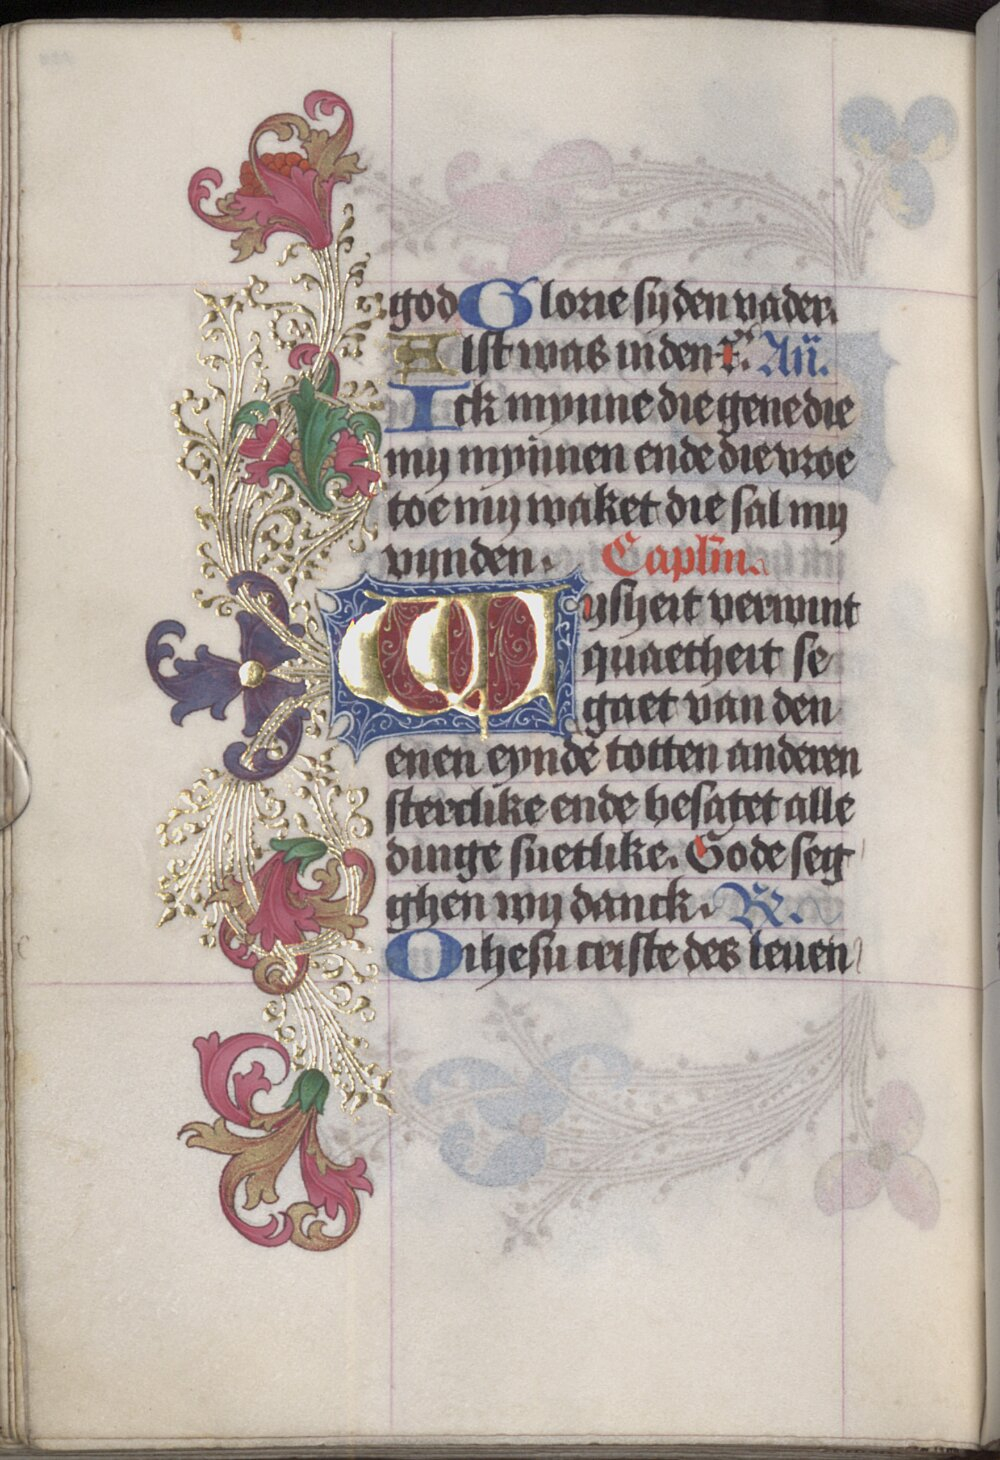 god Glorie sy den vader.
Alst was in den v̄. Añ.
Ick mynne die gene die
my mynnen ende die vroe
toe my waket die sal my
vynden. Caplm̄.
Wysheit verwint
quaetheit se
gaet van den
enen eynde totten anderen
sterclike ende besatet alle
dinge suetlike. Gode seg
ghen wy danck. R.
O ihesu criste des leuen